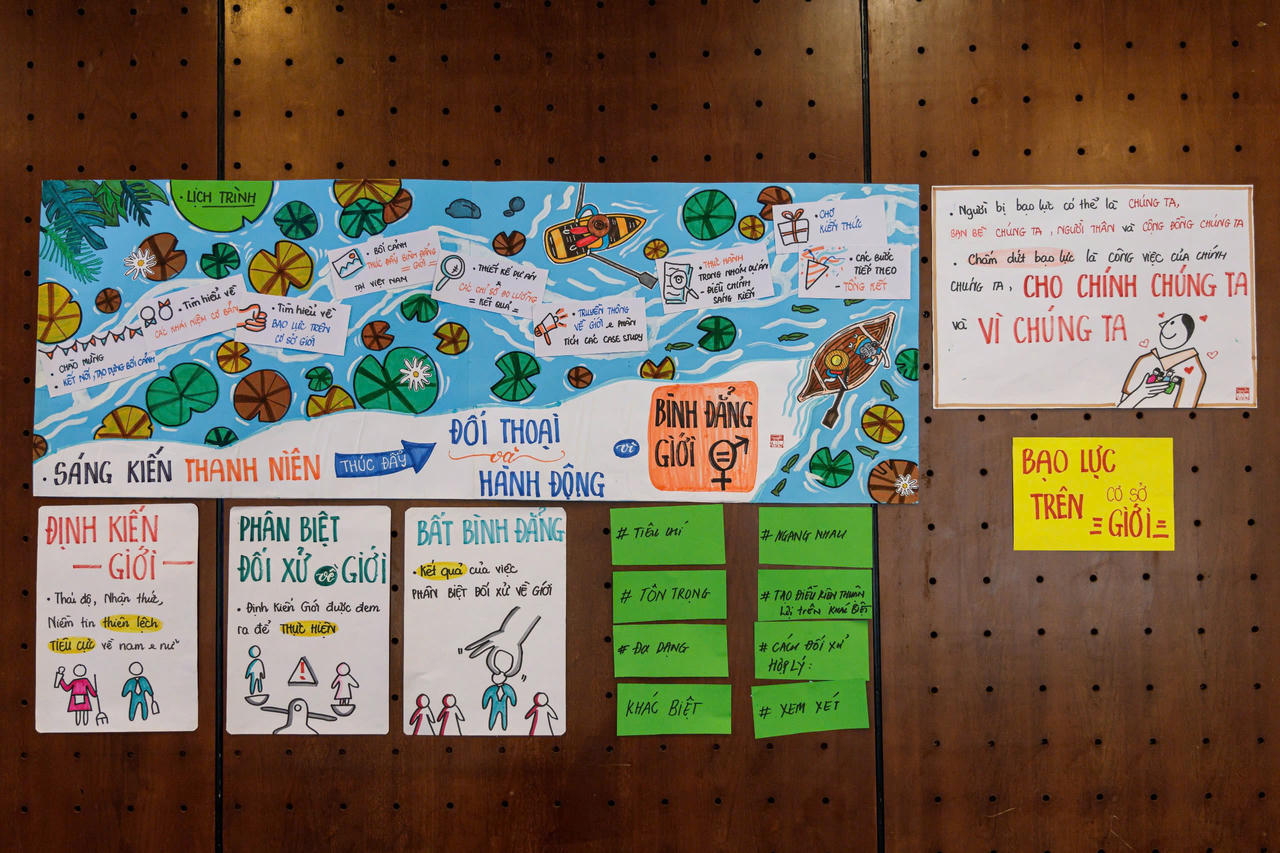 • LỊCH TRÌNH
CHÀO MỪNG
• KẾT NỐI, TẠO DỰNG BỐI CẢNH
• Tìm hiểu về
CÁC KHÁI NIỆM CƠ BẢN
• Tìm hiểu về
BẠO LỰC TRÊN
CƠ SỞ GIỚI
• BỐI CẢNH
THÚC ĐẨY BÌNH ĐẲNG
= GIỚI =
TẠI VIỆT NAM
• THIẾT KẾ DỰ ÁN
&
CÁC CHỈ SỐ ĐO LƯỜNG
= KẾT QUẢ =
• TRUYỀN THÔNG
VỀ GIỚI & PHÂN
TÍCH CÁC CASE STUDY
• THỰC HÀNH
TRONG NHÓM DỰ ÁN
- ĐIỀU CHỈNH
SÁNG KIẾN
• CHỢ
KIẾN THỨC
• CÁC BƯỚC
TIẾP THEO
- TỔNG KẾT
• SÁNG KIẾN THANH NIÊN THÚC ĐẨY
ĐỐI THOẠI
và
HÀNH ĐỘNG
vì
BÌNH ĐẲNG
GIỚI
• Người bị bạo lực có thể là CHÚNG TA,
BẠN BÈ CHÚNG TA, NGƯỜI THÂN và CỘNG ĐỒNG CHÚNG TA
• Chấm dứt bạo lực là công việc của chính
chúng ta, CHO CHÍNH CHÚNG TA
và VÌ CHÚNG TA
BẠO LỰC
TRÊN CƠ SỞ
= GIỚI =
ĐỊNH KIẾN
— GIỚI —
• Thái độ, Nhận thức,
Niềm tin thiên lệch
TIÊU CỰC về nam & nữ
PHÂN BIỆT
ĐỐI XỬ về GIỚI
• Định Kiến Giới được đem
ra để THỰC HIỆN
BẤT BÌNH ĐẲNG
• Kết quả của việc
PHÂN BIỆT ĐỐI XỬ VỀ GIỚI
# TIÊU CHÍ
# TÔN TRỌNG
# ĐA DẠNG
KHÁC BIỆT
# NGANG NHAU
# TẠO ĐIỀU KIỆN THUẬN
LỢI TRÊN KHÁC BIỆT
# CÁCH ĐỐI XỬ
HỢP LÝ:
# XEM XÉT